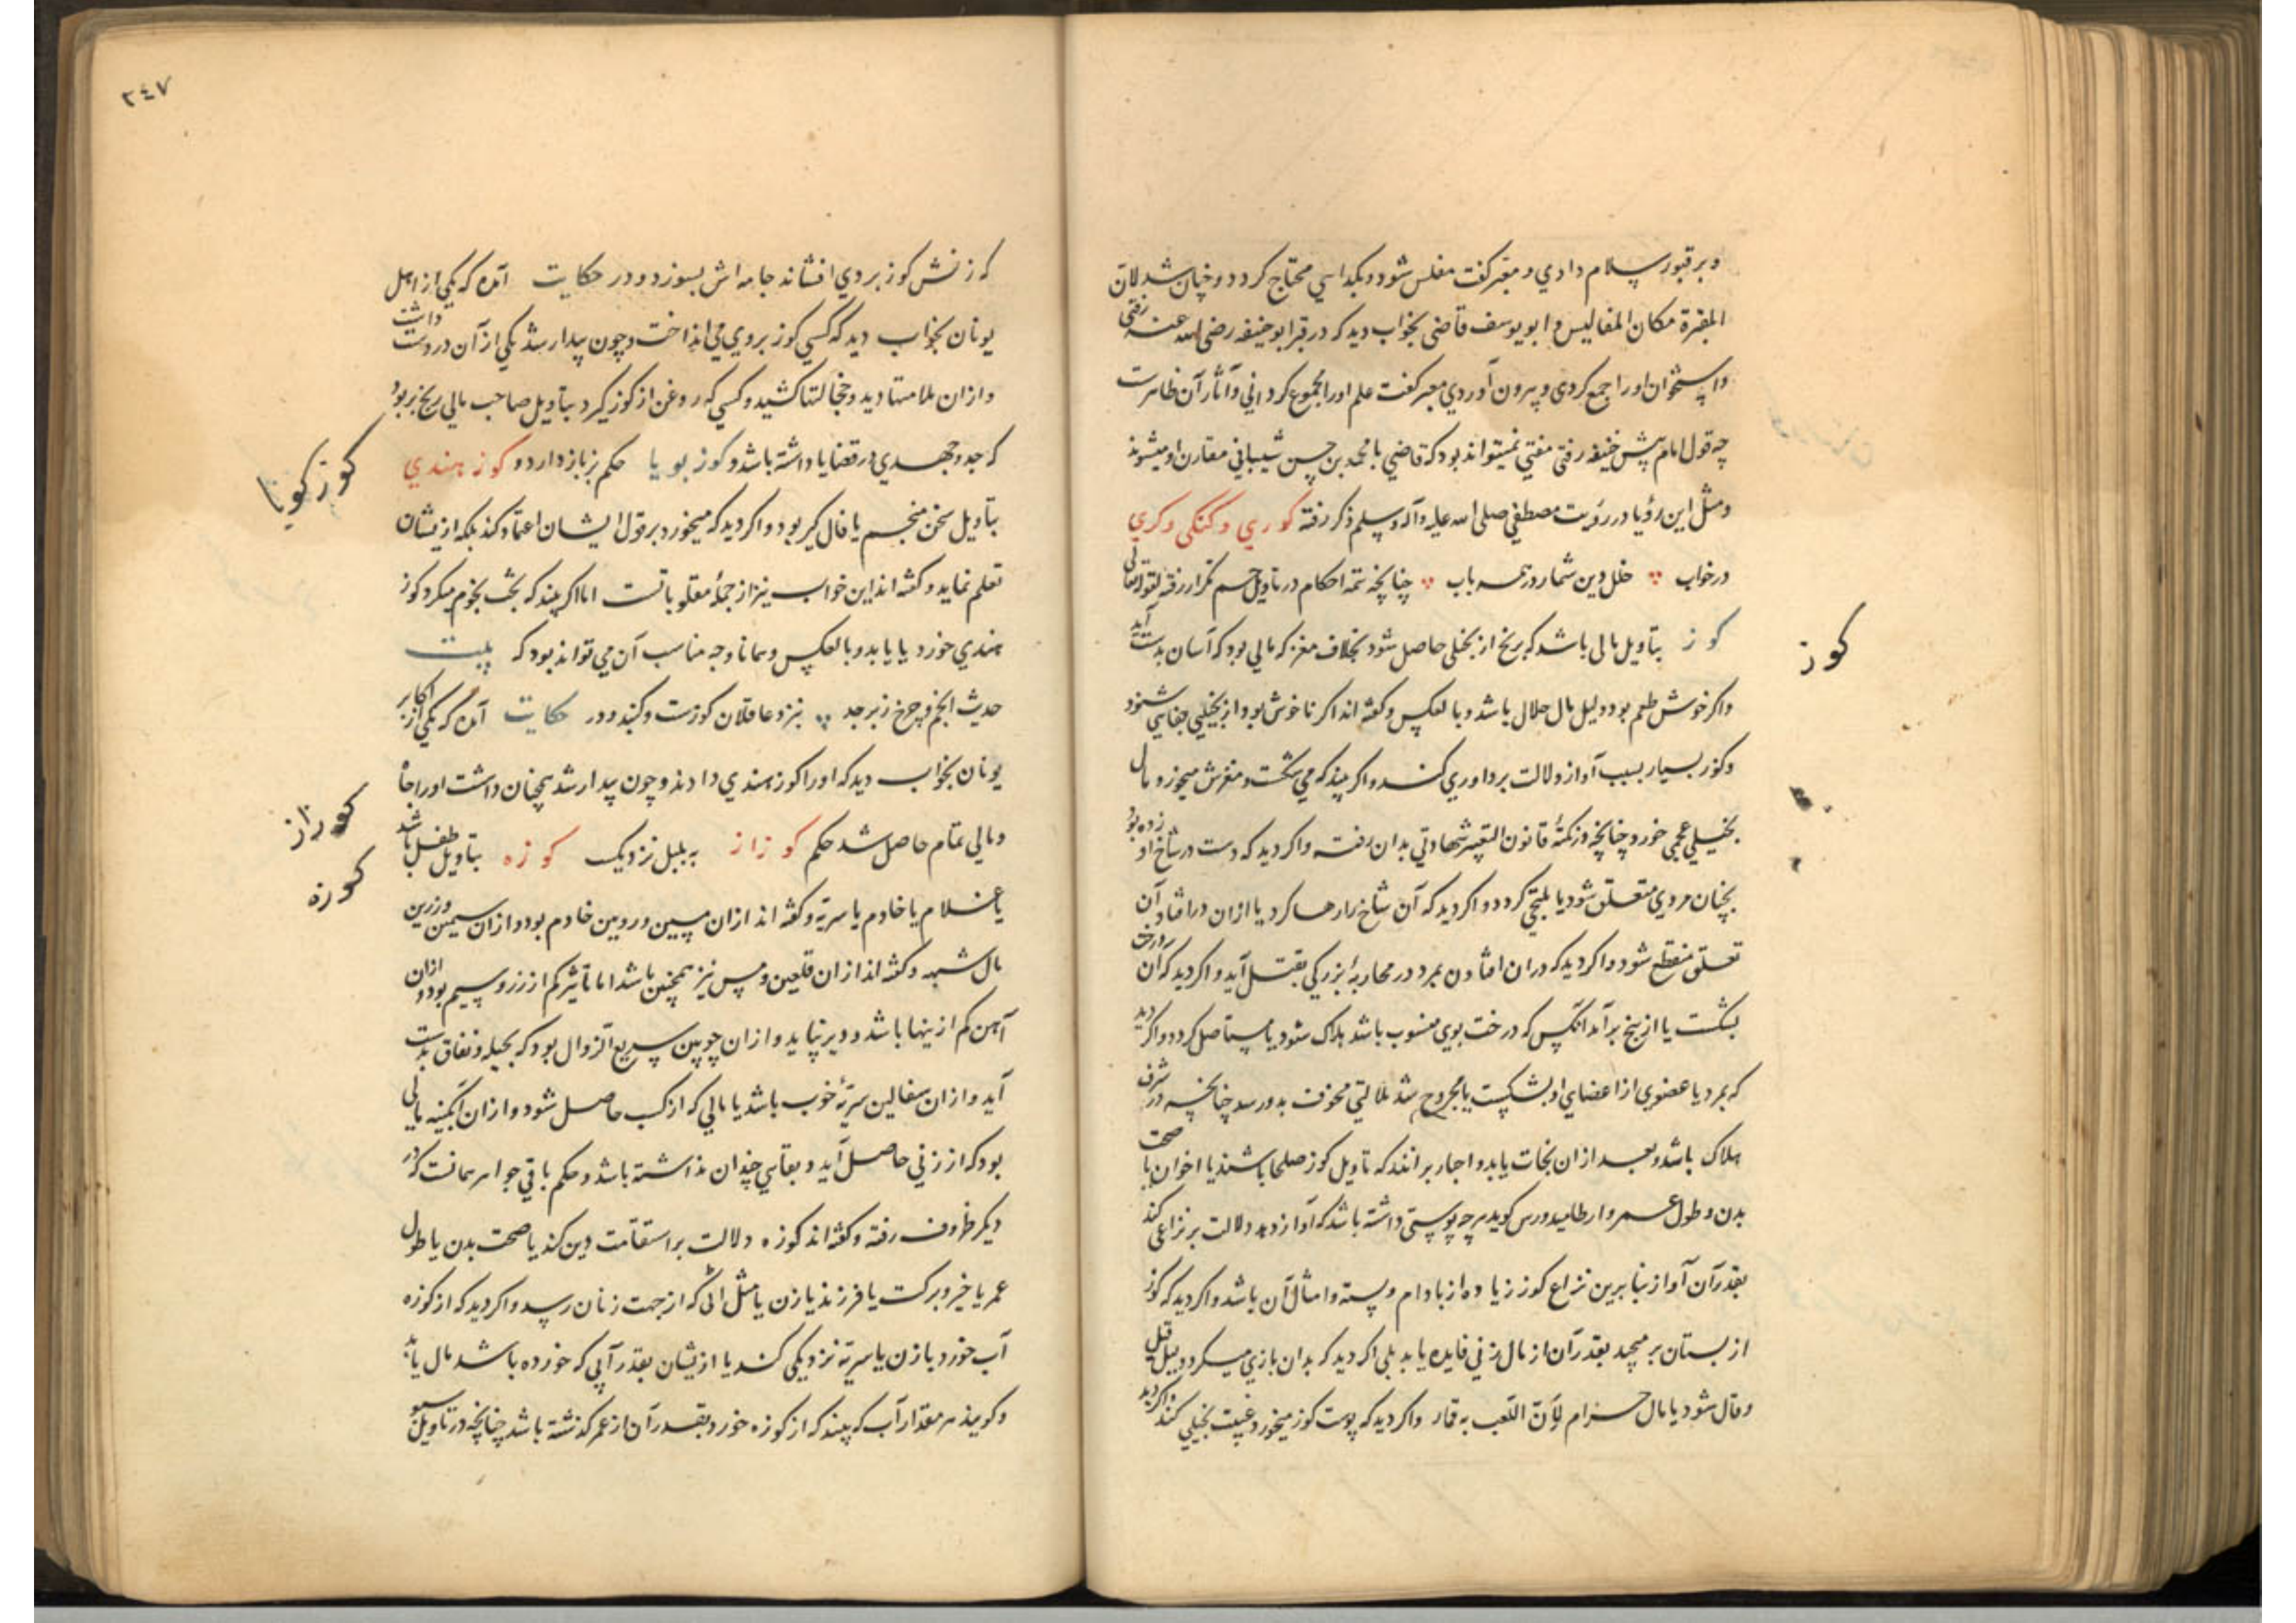 و بر قبور سلام دادی و معبر گفت مفلس شود و بگدایی محتاج کردد و چنان شد لان
المقبرة مکان المفالیس و ابو یوسف قاضی بخواب دید که در قبر ابو حنیفه رضی الله عنه رفتی
و استخوان او را جمع کردی و بیرون آوردی معبر گفت علم او را مجموع کردانی و آثار آن ظاهرست
چه قول امام پیش حنیفه رفتی مفتی نمیتواند بود که قاضی یا محمد بن حسن شیبانی مقارن او میشوند
و مثل این رؤیا در رؤیت مصطفی صلی الله علیه و آله و سلم ذکر رفته کوری و کنکی و کری
در خواب خلل دین شمار در همه باب چنانچه تتمه احکام در تاویل چشم تکرار رفته لقوله تعالی
کوز بتأویل مالی باشد که برنج از بخلی حاصل شود بخلاف مغز که مالی بود که آسان بدست آید
و اکر خوش طعم بود دلیل مال حلال باشد و بالعکس و گفته اند اکر ناخوش بود از بخیلی جفایی شنود
و کوز بسیار بسبب آواز دلالت بر داوری کند و اکر بیند که می شکست و مغزش میخورد مال
بخیلی عجمی خورد چنانچه در نکتهٔ قانون التعبیر شهادتی بدان رفت و اکر دید که دست در شاخ او زده بود
بچنان مردی متعلق شود یا ملتجی کردد و اکر دید که آن شاخ را رها کرد یا از آن در افتاد آن
تعلق منقطع شود و اکر دید که در آن افتادن بمرد در محاربهٔ بزرکی بقتل آید و اکر دید که آن درخت
بشکست یا از بیخ بر آمد آنکس که درخت بوی منسوب باشد هلاک شود یا مستأصل کردد و اکر دید
که بمرد یا عضوی از اعضای او بشکست یا مجروح شد ملالتی مخوف بدو رسد چنانچه در شرف
هلاک باشد و بعد از آن نجات یابد و احبار بر آنند که تاویل کوز صلحا باشند یا اخوان یا صحت
بدن و طول عمر و ارطامیدورس کوید هر چه پوستی داشته باشد که آواز دهد دلالت بر نزاعی کند
بقدر آن آواز بنا برین نزاع کوز زیاده از بادام و پسته و امثال آن باشد و اکر دید که کوز
از بستان بر میچید بقدر آن از مال زنی فایده یابد بلی اکر دید که بدان بازی میکرد دلیل قیل
و قال شود یا مال حرام لأن اللعب به قمار و اکر دید که پوست کوز میخورد غیبت بخیلی کند و اکر دید
کوز
٢٤٧
که زنش کوز بر وی افشاند جامه اش بسوزد و در حکایت آمده که یکی از اهل
یونان بخواب دید که کسی کوز بر وی می انداخت و چون بیدار شد یکی از آن در دست داشت
و از آن ملامتها دید و خجالتها کشید و کسی که روغن از کوز کیرد بتأویل صاحب مالی برنج بربود
که جد و جهدی در قضایا داشته باشد و کوز بویا حکم بزباز دارد و کوز هندی
بتأویل سخن منجم یا فال کیر بود و اکر دید که میخورد بر قول ایشان اعتماد کند بلکه ازیشان
تعلم نماید و گفته اند این خواب نیز از جملهٔ مقلوباتست اما اکر بیند که بحث بنجوم میکرد کوز
هندی خورد یا یابد و بالعکس و همانا وجه مناسب آن می تواند بود که بیت
حدیث انجم و چرخ زبرجد بنزد عاقلان کوزست و کنبد و در حکایت آمده که یکی از اکابر
یونان بخواب دید که او را کوز هندی دادند و چون بیدار شد همچنان داشت او را جاه
و مالی تمام حاصل شد حکم کوزاز به بلبل نزدیک کوزه بتأویل طفل باشد
یا غلام یا خادم یا سریه و گفته اند از آن مسین و رویین خادم بود و از آن سیمین و زرین
مال شبه و گفته اند از آن قلعین و مس نیز همچنین باشد اما تأثیر کم از زر و سیم بود و از آن
آهن کم ازینها باشد و دیر نپاید و از آن چوبین سریع الزوال بود که بحیله و نفاق بدست
آید و از آن سفالین سریهٔ خوب باشد یا مالی که از کسب حاصل شود و از آن آبکینه مالی
بود که از زنی حاصل آید و بقایی چندان نداشته باشد و حکم باقی جواهر همانست که در
دیکر ظروف رفته و گفته اند کوزه دلالت بر استقامت دین کند یا صحت بدن یا طول
عمر یا خیر و برکت یا فرزند یا زن یا مثل آنی که از جهت زنان رسد و اکر دید که از کوزه
آب خورد با زن یا سریه نزدیکی کند یا ازیشان بقدر آبی که خورده باشد مال یابد
و کویند هر مقدار آب که بیند که از کوزه خورد بقدر آن از عمر کذشته باشد چنانچه در تاویل سبو
کوز کویا
کوزاز
کوزه